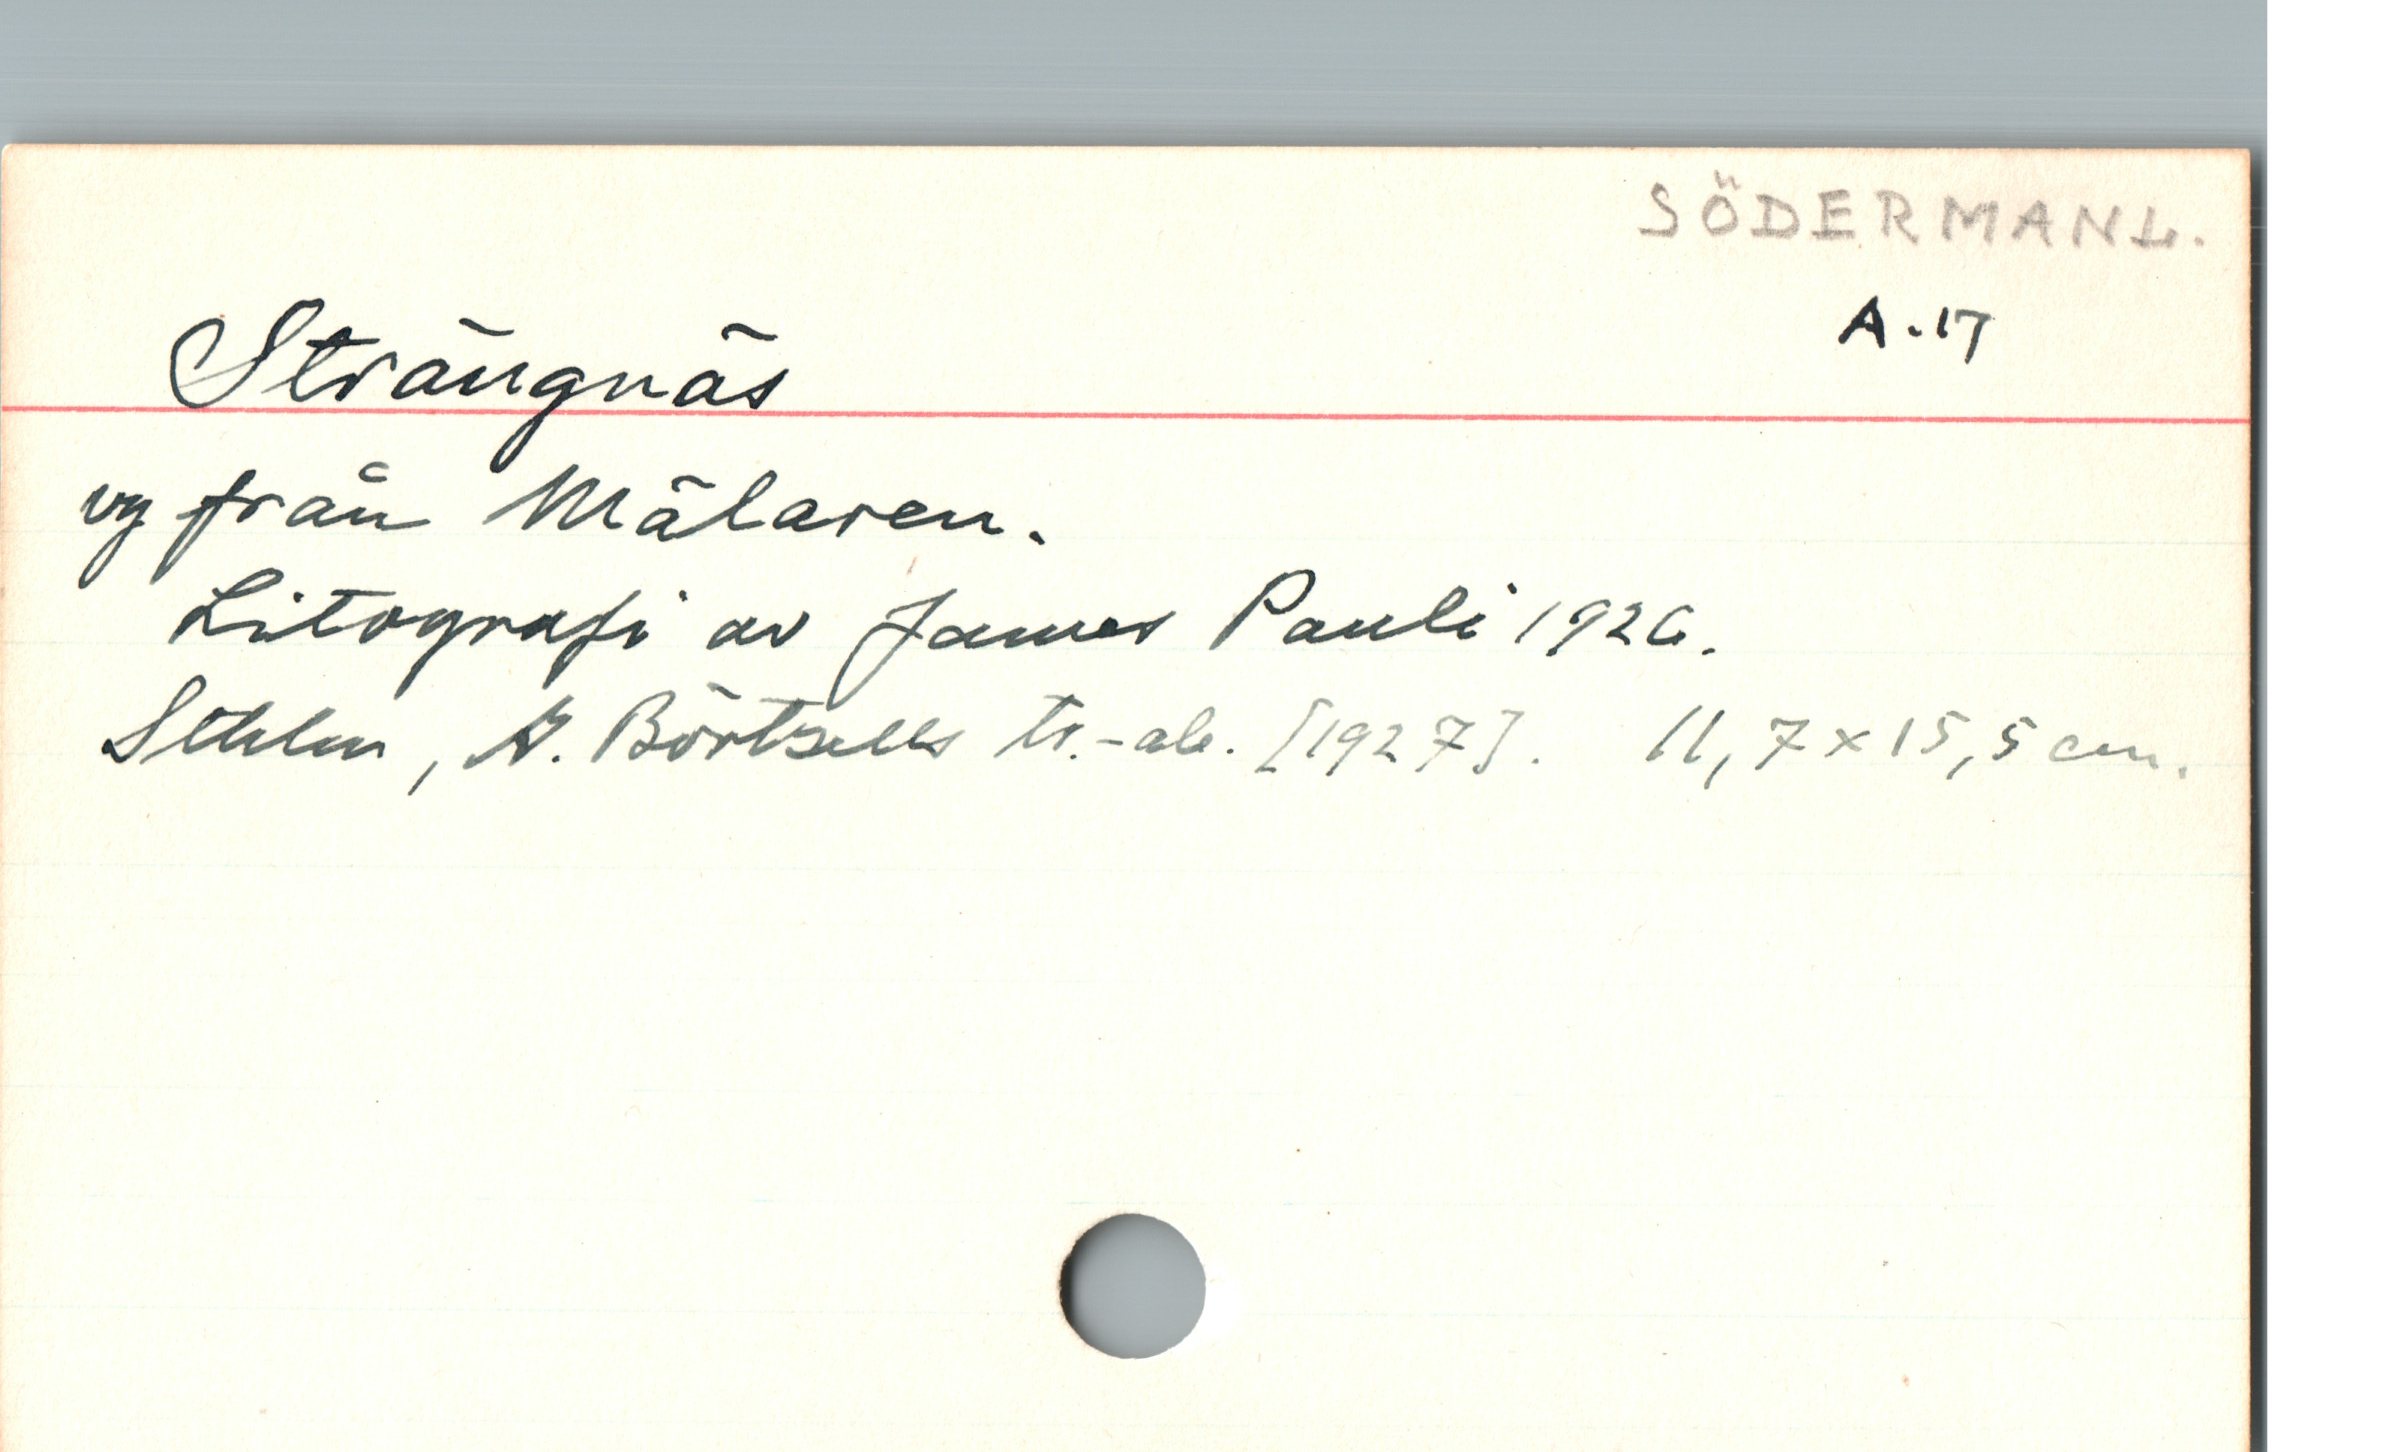 SÖDERMANL.
A.17
Strängnäs
vy från Mälaren.
Litografi av James Pauli 1926.
Sthlm, A. Börtzells tr.-ab. [1927]. 11,7 x 15,5 cm.